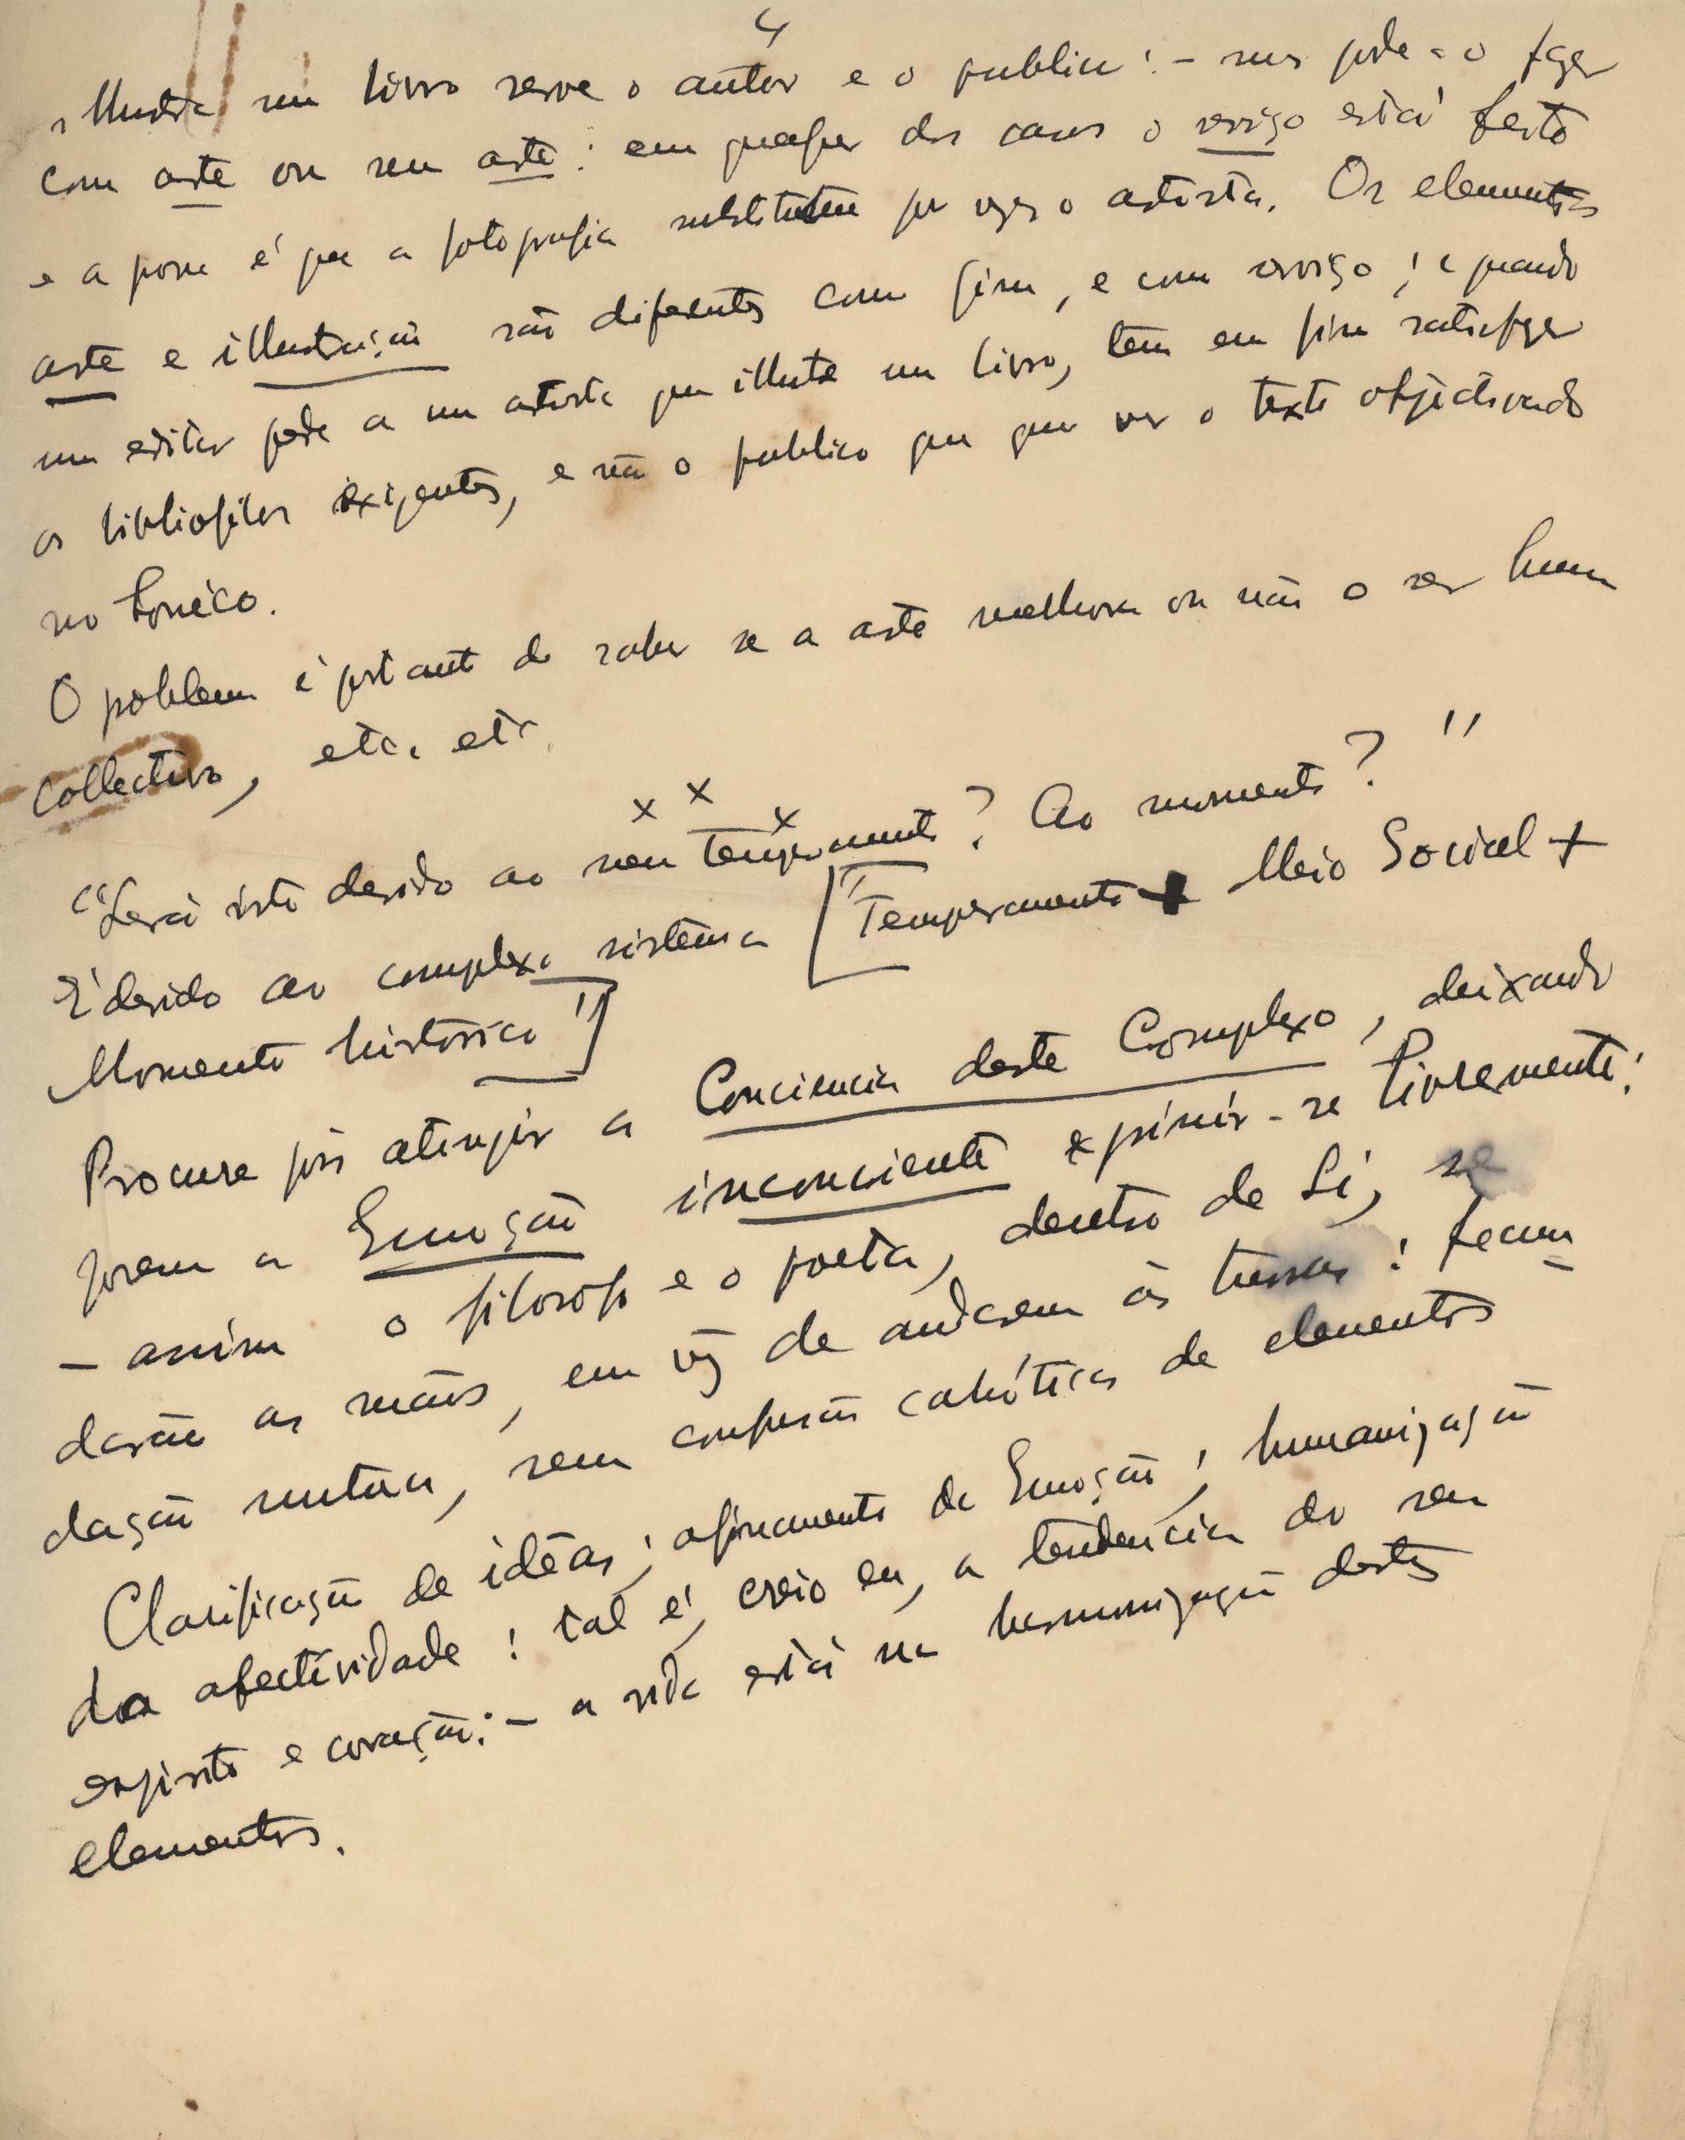 4
illustra um livro serve o autor e o publico: – mas pode-o fazer
com arte ou sem arte: em qualquer dos casos o serviço está feito
e a prova é que a fotografia substitue por vezes o artista. Os elementos
arte e illustração são diferentes como fim, e como serviço; e quando
um editor pede a um artista que illustre um livro, tem em fim satisfazer
os bibliofilos exigentes, e não o publico que quer ver o texto objectivado
no boneco.
O problema é portanto de saber se a arte melhora ou não o ser humano
collectivo, etc. etc.
x x x
"Será isto devido ao meu temperamento? Ao momento?"
É devido ao complexo sistema ["Temperamento + Meio Social +
Momento historico"]
Procure pois atingir a Conciencia deste Complexo, deixando
porem a Emoção inconsciente exprimir-se livremente:
– assim o filosofo e o poeta, dentro de Si, se
darão as mãos, em vez de andarem ás turras: fecun-
dação mutua, sem confusão cahótica de elementos
Clarificação de idéas; afinamento da Emoção; humanização
da afectividade: tal é, creio eu, a tendencia do seu
espirito e coração: – a vida está na harmonização destes
elementos.